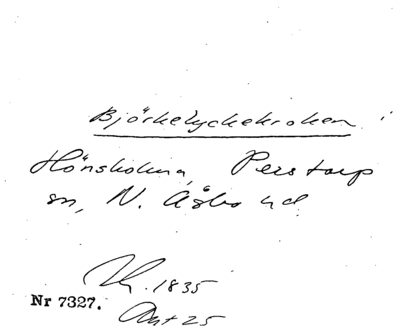 Björkelyckekroken i
Hönsholma, Perstorp
sn, N. Åsbo hd
Lm. 1835
Nr 7327. Akt 25